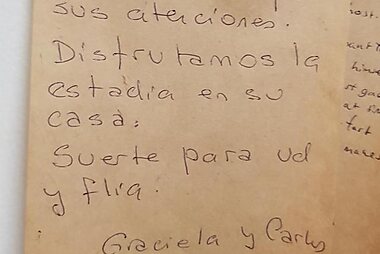 sus atenciones.
Disfrutamos la
estadia en su
casa.
Suerte para ud
y flia.
Graciela y Carlos